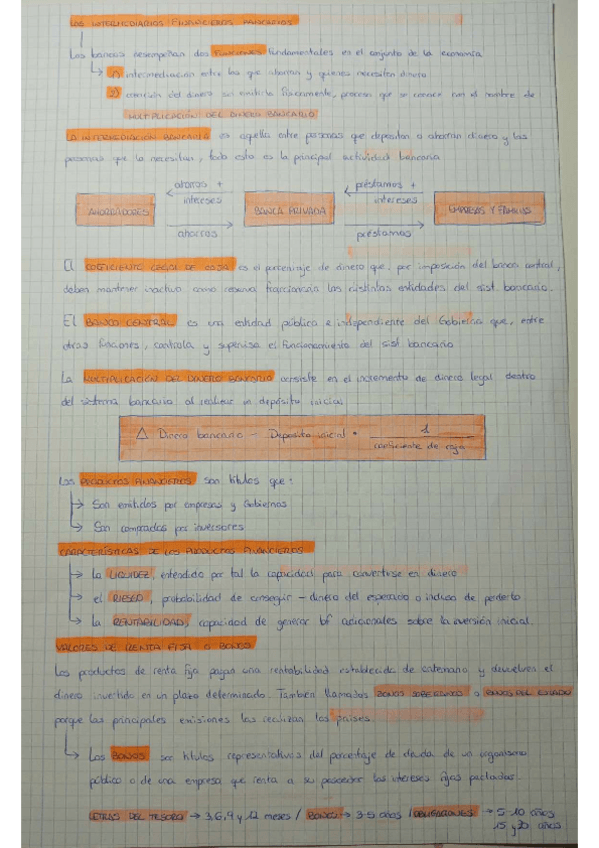 LOS INTERMEDIARIOS FINANCIEROS BANCARIOS
Los bancos desempeñan dos funciones fundamentales en el conjunto de la economía
1) intermediación entre los que ahorran y quienes necesitan dinero
2) creación del dinero sin emitirlo físicamente, proceso que se conoce con el nombre de
MULTIPLICACIÓN DEL DINERO BANCARIO
LA INTERMEDIACIÓN BANCARIA es aquella entre personas que depositan o ahorran dinero y las
personas que lo necesitan, todo esto es la principal actividad bancaria
ahorros + intereses
préstamos + intereses
AHORRADORES
BANCA PRIVADA
EMPRESAS Y FAMILIAS
ahorros
préstamos
El COEFICIENTE LEGAL DE CAJA es el porcentaje de dinero que, por imposición del banco central,
deben mantener inactivo como reserva las distintas entidades del sist. bancario.
El BANCO CENTRAL es una entidad pública e independiente del Gobierno que, entre
otras funciones, controla y supervisa el funcionamiento del sist bancario
La MULTIPLICACIÓN DEL DINERO BANCARIO consiste en el incremento de dinero legal dentro
del sistema bancario al realizar un depósito inicial
Δ Dinero bancario = Deposito inicial · 1
coeficiente de caja
Los PRODUCTOS FINANCIEROS son títulos que:
→ Son emitidos por empresas y Gobiernos
→ Son comprados por inversores
CARACTERÍSTICAS DE LOS PRODUCTOS FINANCIEROS
→ la LIQUIDEZ, entendida por tal la capacidad para convertirse en dinero
→ el RIESGO, probabilidad de conseguir - dinero del esperado o incluso de perderlo
→ la RENTABILIDAD, capacidad de generar bº adicionales sobre la inversión inicial.
VALORES DE RENTA FIJA O BONOS
Los productos de renta fija pagan una rentabilidad establecida de antemano y devuelven el
dinero invertido en un plazo determinado. También llamados BONOS SOBERANOS o BONOS DEL ESTADO
porque las principales emisiones las realizan los países.
→ Los BONOS son títulos representativos del porcentaje de deuda de un organismo
público o de una empresa que renta a su poseedor los intereses fijos pactados.
LETRAS DEL TESORO → 3,6,9 y 12 meses / BONOS → 3-5 años / OBLIGACIONES → 5-10 años
15 y 30 años